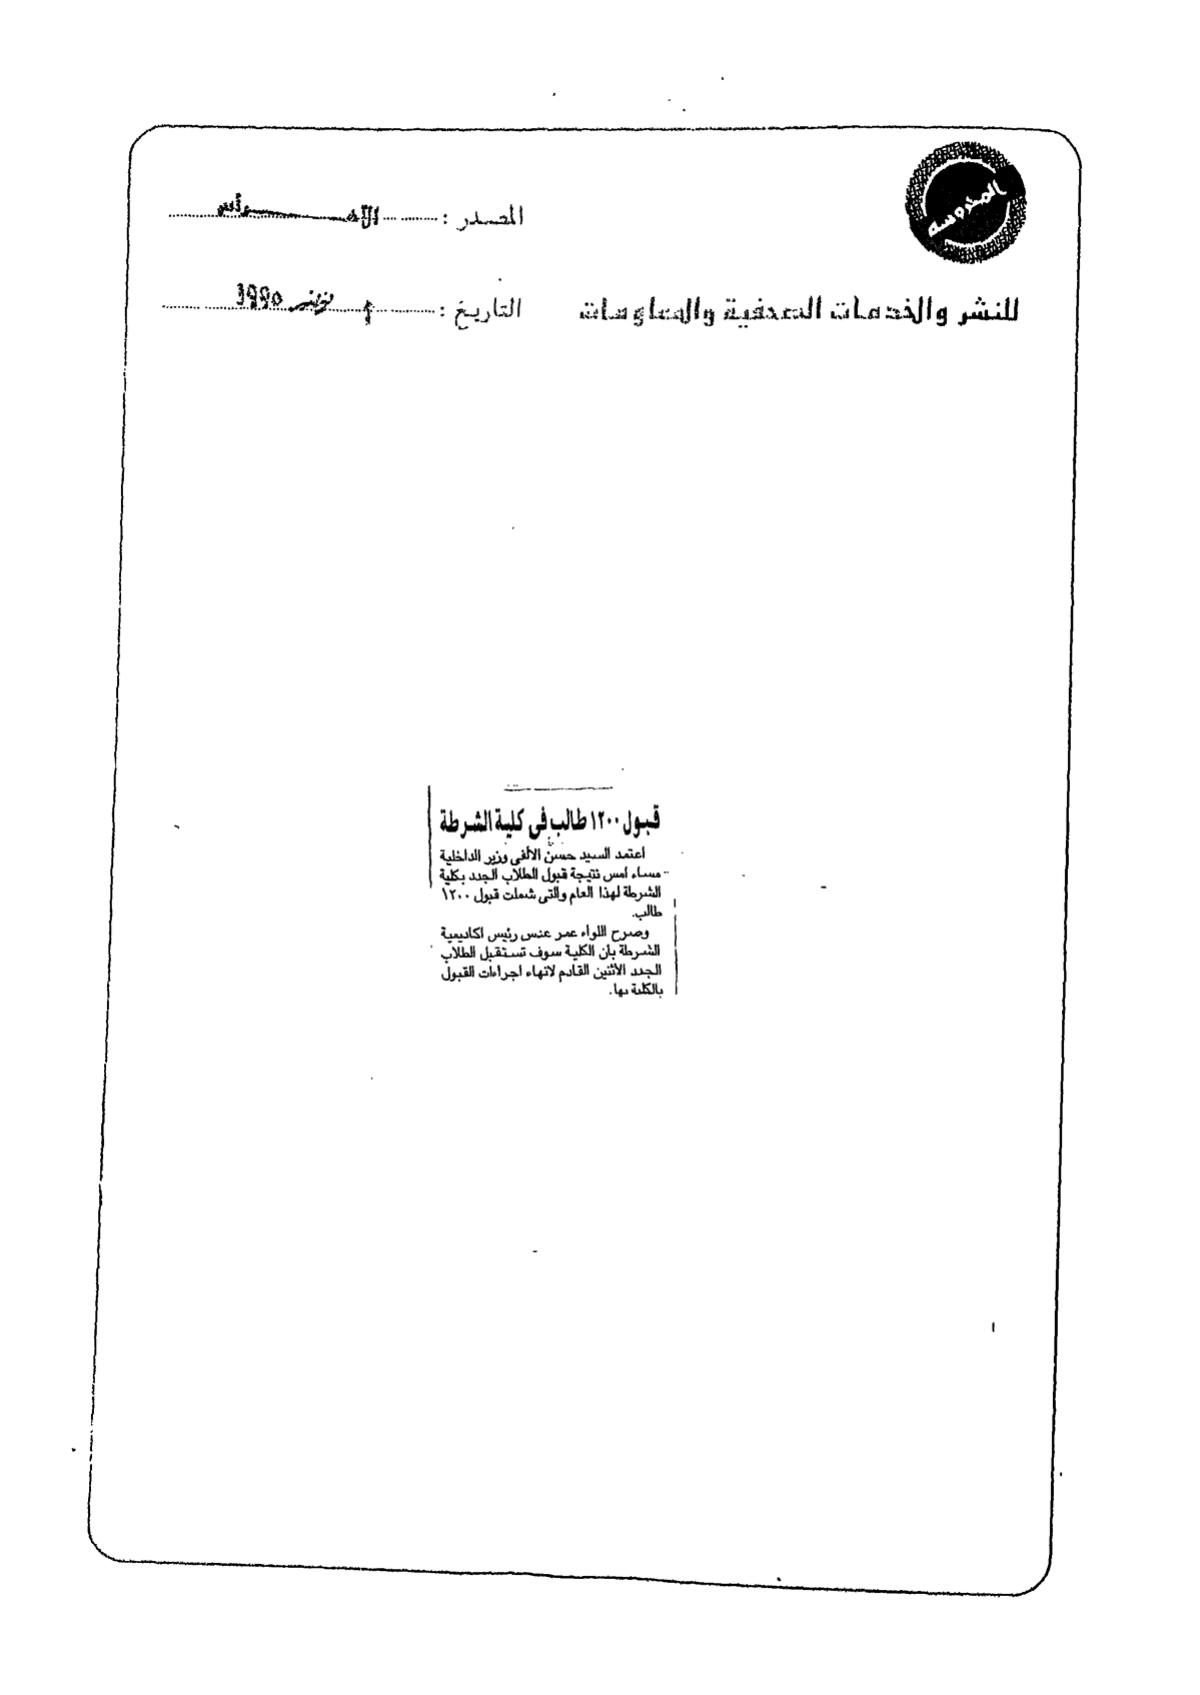 المحروسة
المصدر : الأهرام
للنشر والخدمات الصحفية والمعلومات
التاريخ : نوفمبر ١٩٩٥
قبول ١٢٠٠ طالب فى كلية الشرطة
اعتمد السيد حسن الألفى وزير الداخلية
مساء امس نتيجة قبول الطلاب الجدد بكلية
الشرطة لهذا العام والتى شملت قبول ١٢٠٠
طالب.
وصرح اللواء عمر عنس رئيس اكاديمية
الشرطة بان الكلية سوف تستقبل الطلاب
الجدد الأثنين القادم لانهاء اجراءات القبول
بالكلية بها.